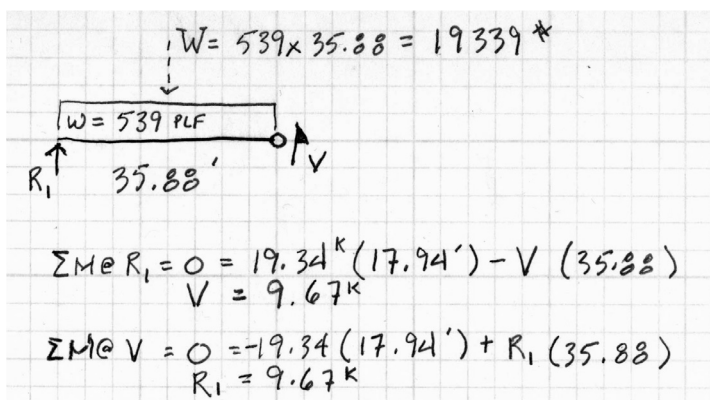 W= 539x 35.88 = 19339 #
W = 539 PLF
R₁ 35.88' V
ΣM@ R₁ = 0 = 19.34ᴷ (17.94') - V (35.88)
V = 9.67ᴷ
ΣM@ V = 0 = -19.34 (17.94') + R₁ (35.88)
R₁ = 9.67ᴷ